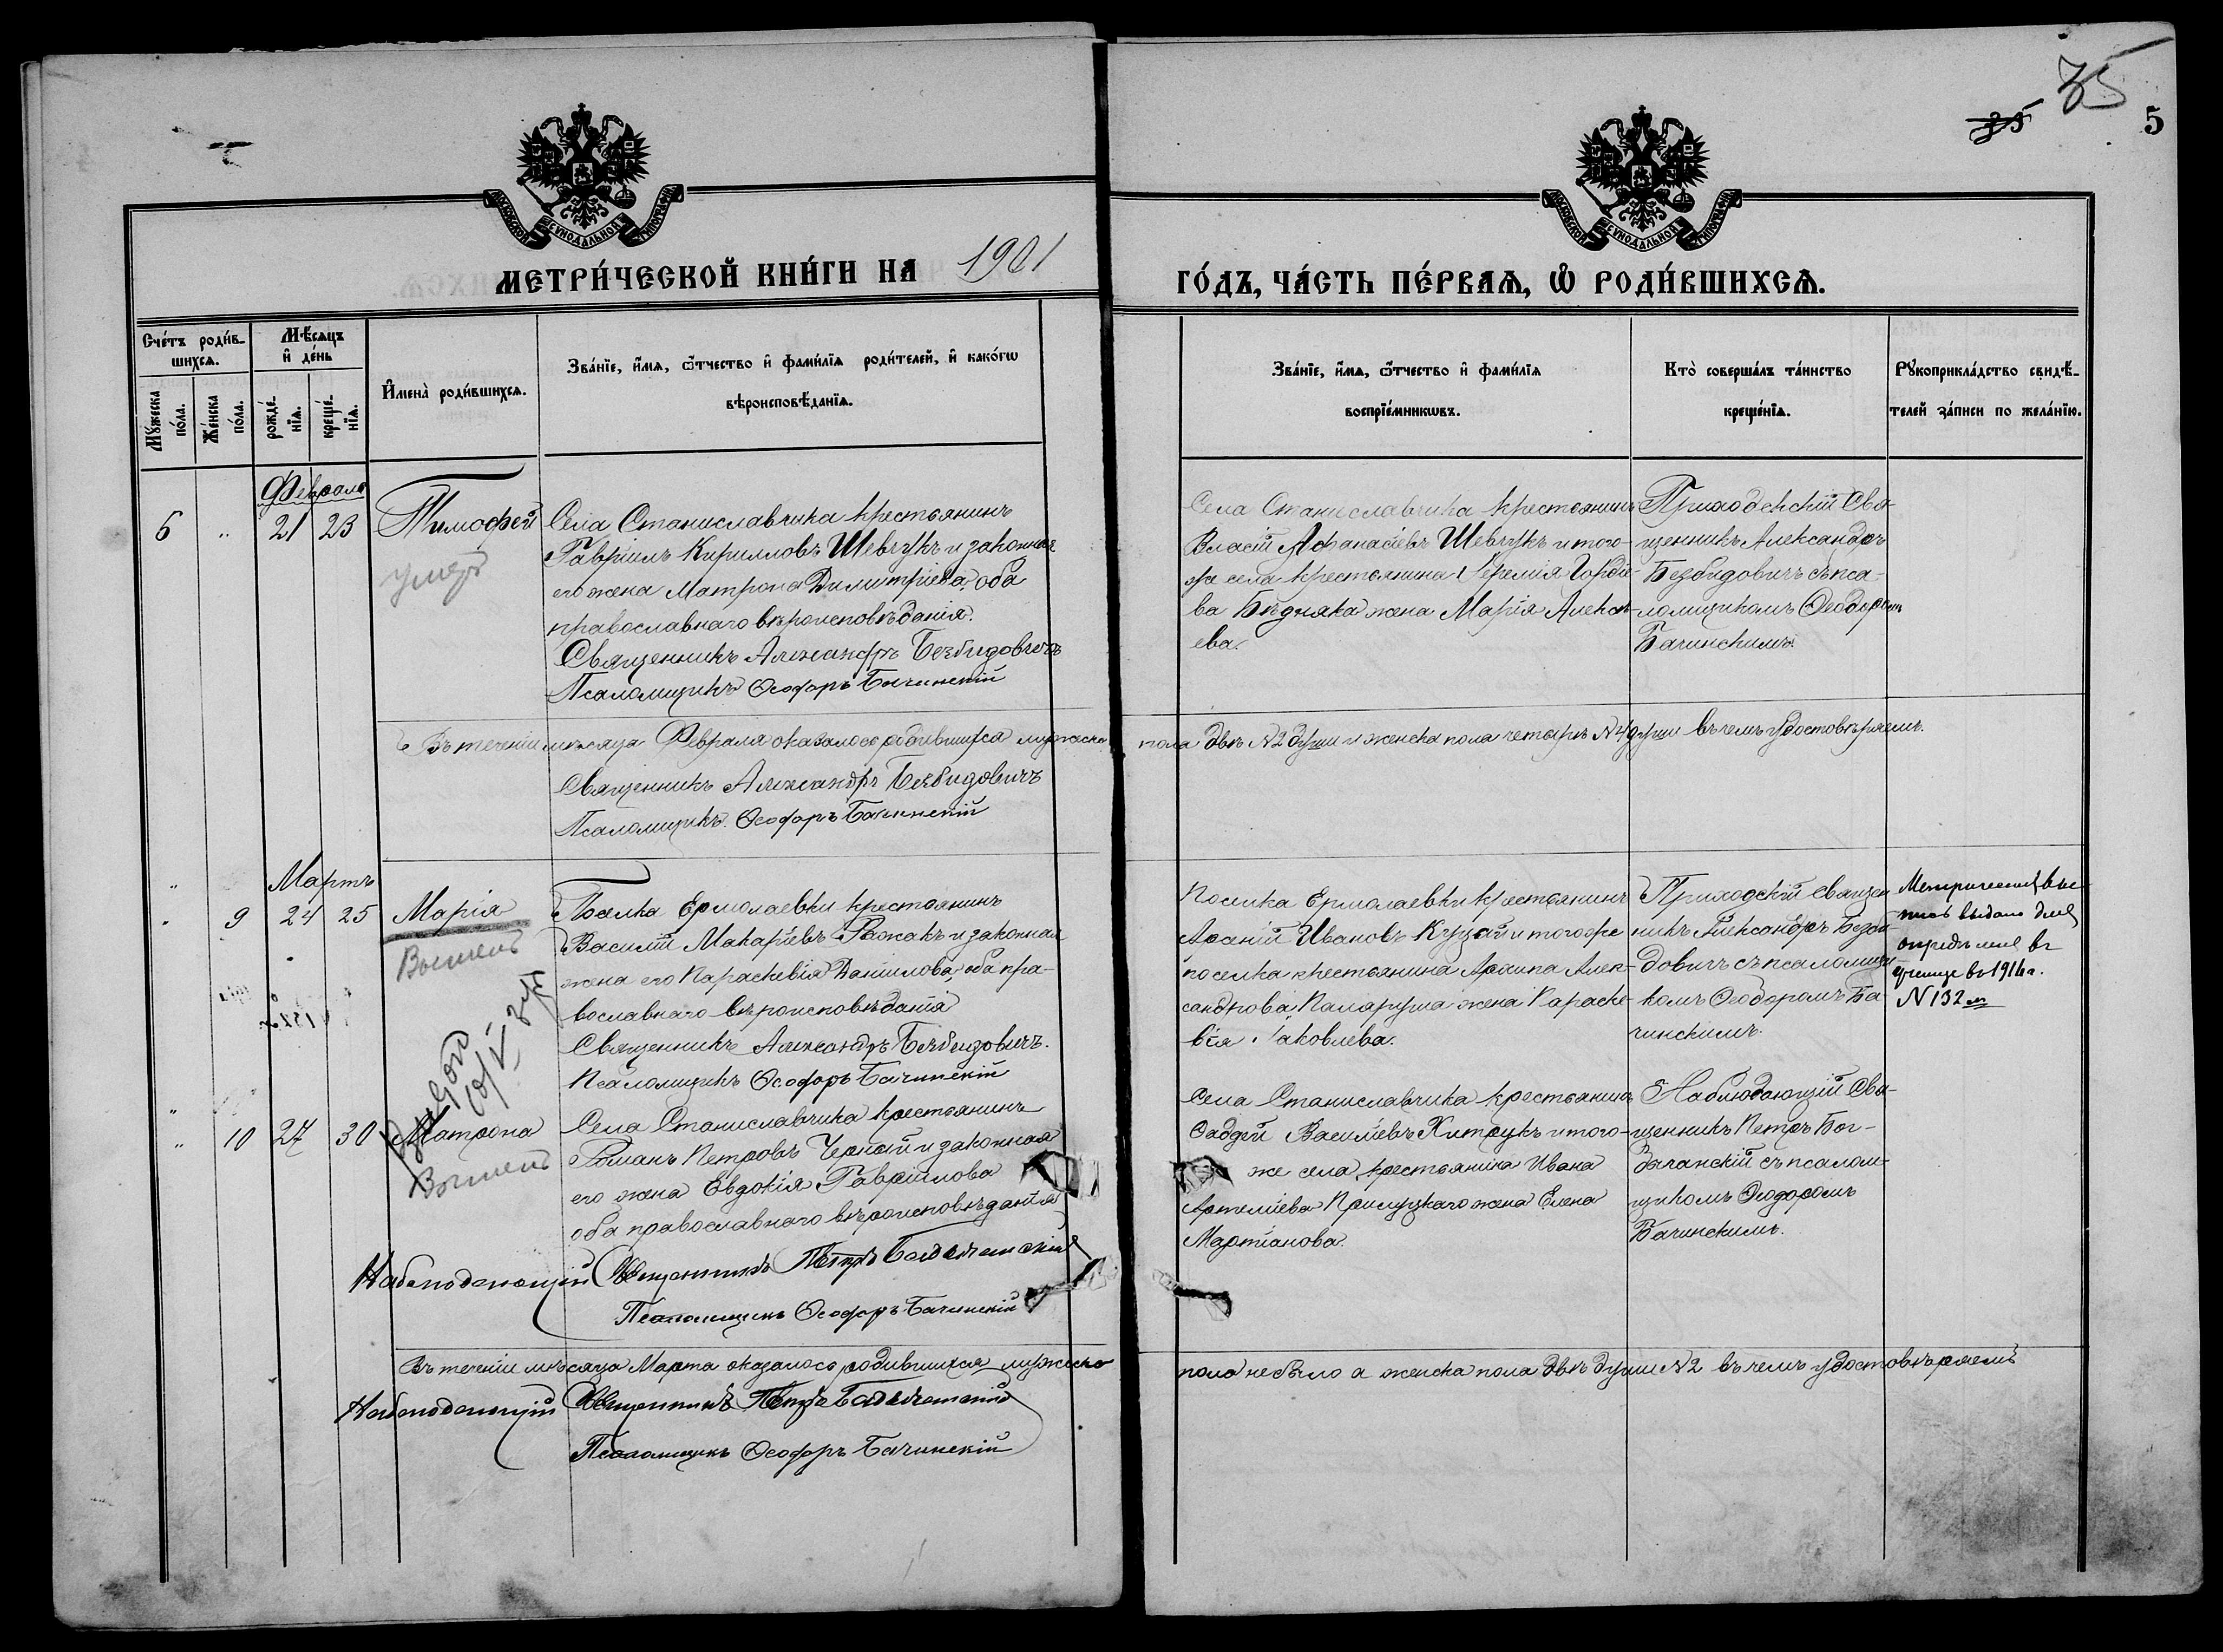 75
35
5
МОСКОВСКОЙ СУНОДАЛЬНОЙ ТИПОГРАФІИ
МОСКОВСКОЙ СУНОДАЛЬНОЙ ТИПОГРАФІИ
МЕТРИ́ЧЕСКОЙ КНИ́ГИ НА 1901
ГО́ДЪ, ЧА́СТЬ ПЕ́РВАѦ, Ѡ҆ РОДИ́ВШИХСѦ.
Сче́тъ роди́в-
шихсѧ.
Мꙋ́жеска
по́ла.
Же́нска
по́ла.
Мѣ́сѧцъ
и҆ де́нь
рожде́-
нїѧ.
креще́-
нїѧ.
И҆мена̀ роди́вшихсѧ.
Зва́нїе, и҆́мѧ, ѻ҆́тчество и҆ фами́лїѧ роди́телей, и҆ како́гѡ
вѣроисповѣ́данїѧ.
Зва́нїе, и҆́мѧ, ѻ҆́тчество и҆ фами́лїѧ
воспрїе́мникѡвъ.
Кто̀ соверша́лъ та́инство
креще́нїѧ.
Рꙋкоприкла́дство свидѣ́-
телей за́писи по жела́нїю.
Февраль
6 " 21 23 Тимофей
умеръ
Села Станиславчика крестьянинъ
Гавріилъ Кирилловъ Шевчукъ и законная
его жена Матрона Димитріева, оба
православнаго вѣроисповѣданія.
Священникъ Александръ Безбидовичъ
Псаломщикъ Ѳеодоръ Бачинскій
Села Станиславчика крестьянинъ
Власій Афанасіевъ Шевчукъ и того-
же села крестьянина Іеремія Гордіе-
ва Бѣдняка жена Марія Алексѣ-
ева.
Приходскій Свя-
щенникъ Александръ
Безбидовичъ съ пса-
ломщикомъ Ѳеодоромъ
Бачинскимъ.
Въ теченіи мѣсяца Февраля оказалось родившихся мужеска пола двѣ №2 души и женска пола четырѣ №4 души въ чемъ удостовѣряемъ.
Священникъ Александръ Безбидовичъ
Псаломщикъ Ѳеодоръ Бачинскій
Мартъ
" 9 24 25 Марія
Посёлка Ермолаевки крестьянинъ
Василій Макаріевъ Ражакъ и законная
жена его Параскевія Даніилова, оба пра-
вославнаго вѣроисповѣданія
Священникъ Александръ Безбидовичъ.
Псаломщикъ Ѳеодоръ Бачинскій
Поселка Ермолаевки крестьянинъ
Арсеній Ивановъ Куцай и того же
поселка крестьянина Архипа Алек-
сандрова Паларуша жена Параске-
вія Іаковлева.
Приходскій священ
никъ Александръ Безби-
довичъ съ псаломщи-
комъ Ѳеодоромъ Ба
чинскимъ.
Метрическая вы-
пись выдана для
опредѣленія въ
училище въ 1914 г.
№ 132
" 10 27 30 Матрона
Села Станиславчика крестьянинъ
Романъ Петровъ Черный и законная
его жена Евдокія Гавріилова
оба православнаго вѣроисповѣданія
Наблюдающій Священникъ Петръ Богдачанскій
Псаломщикъ Ѳеодоръ Бачинскій
Села Станиславчика крестьянинъ
Фаддей Василіевъ Хитрукъ и того-
же села крестьянина Ивана
Артеміева Прилуцкаго жена Елена
Мартіанова.
Наблюдающій Свя-
щенникъ Петръ Бог-
дачанскій съ псалом-
щикомъ Ѳеодоромъ
Бачинскимъ.
Въ теченіи мѣсяца Марта оказалось родившихся мужеска пола не было а женска пола двѣ души №2 въ чемъ удостовѣряемъ
Наблюдающій Священникъ Петръ Богдачанскій
Псаломщикъ Ѳеодоръ Бачинскій